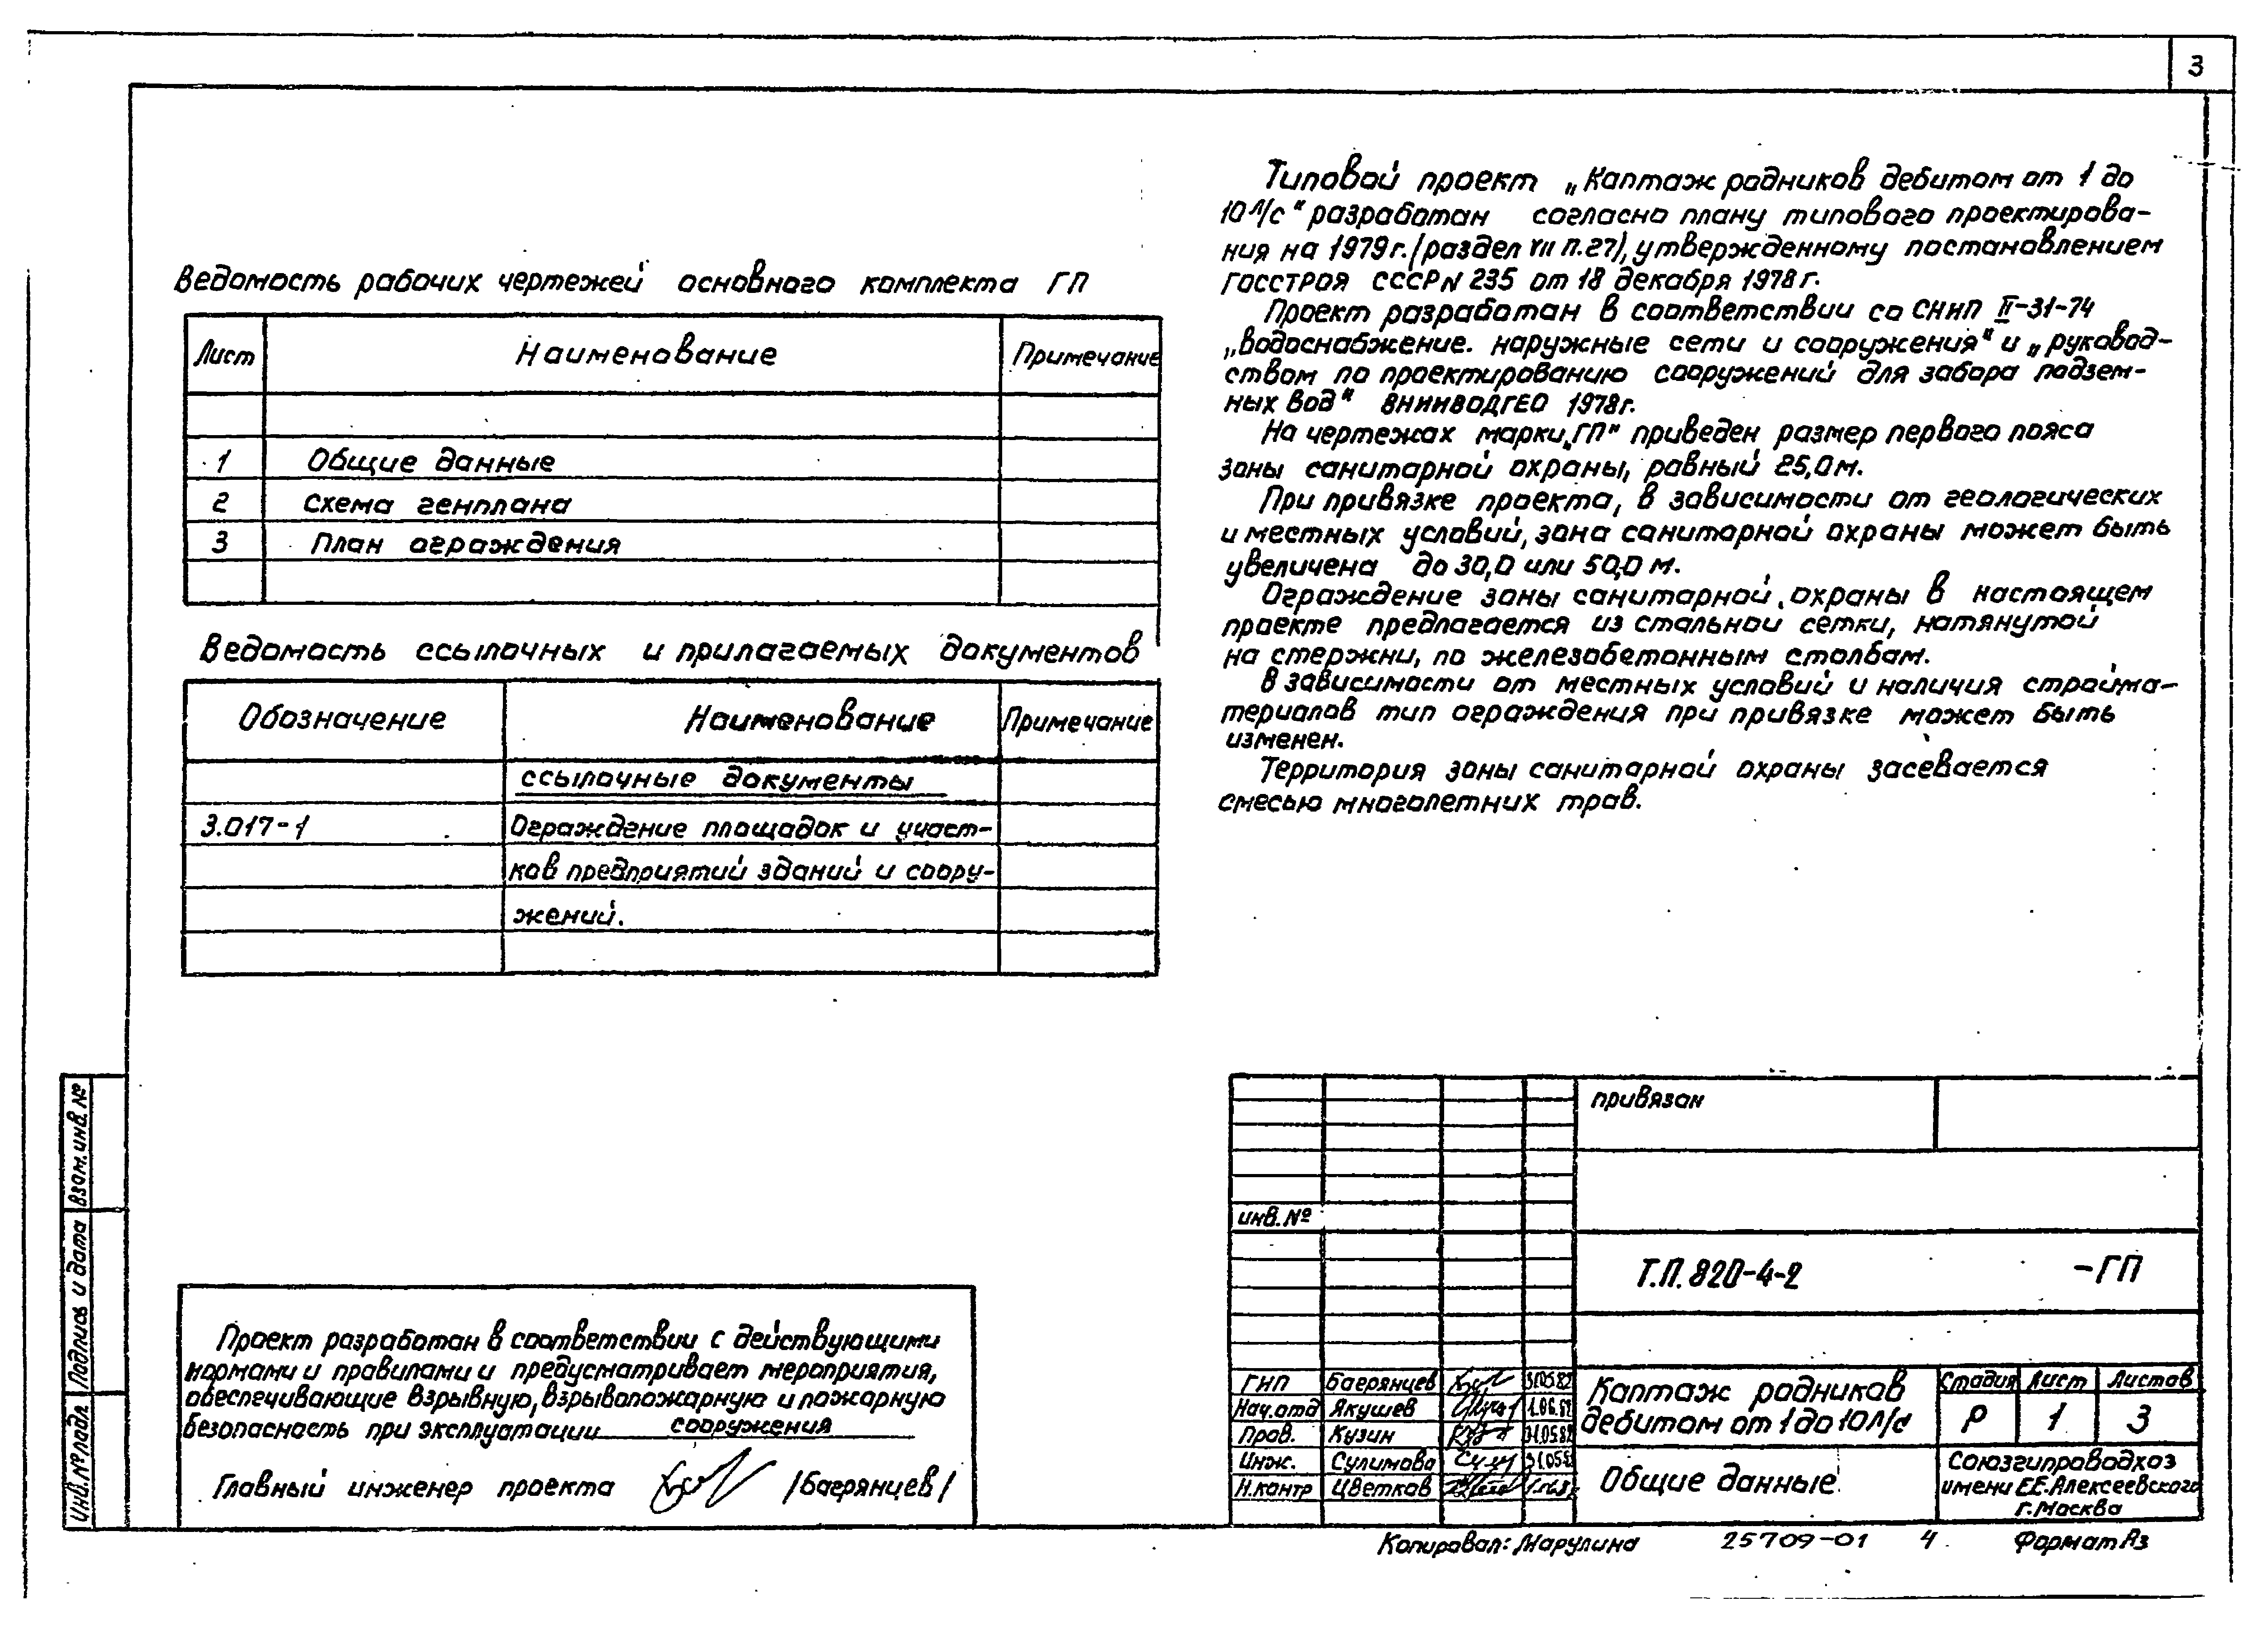 3
Ведомость рабочих чертежей основного комплекта ГП
Лист Наименование Примечание
1 Общие данные
2 Схема генплана
3 План ограждения
Ведомость ссылочных и прилагаемых документов
Обозначение Наименование Примечание
ссылочные документы
3.017-1 Ограждение площадок и участ-
ков предприятий зданий и соору-
жений.
Типовой проект „Каптаж родников дебитом от 1 до
10 л/с" разработан согласно плану типового проектирова-
ния на 1979г. (раздел VII п.27), утвержденному постановлением
Госстроя СССР N 235 от 18 декабря 1978г.
Проект разработан в соответствии со СНиП II-31-74
„Водоснабжение. наружные сети и сооружения" и „руковод-
ством по проектированию сооружений для забора подзем-
ных вод" ВНИИВОДГЕО 1978г.
На чертежах марки „ГП" приведен размер первого пояса
зоны санитарной охраны, равный 25,0м.
При привязке проекта, в зависимости от геологических
и местных условий, зона санитарной охраны может быть
увеличена до 30,0 или 50,0 м.
Ограждение зоны санитарной охраны в настоящем
проекте предлагается из стальной сетки, натянутой
на стержни, по железобетонным столбам.
В зависимости от местных условий и наличия стройма-
териалов тип ограждения при привязке может быть
изменен.
Территория зоны санитарной охраны засевается
смесью многолетних трав.
Взам. инв. №
Подпись и дата
Инв. № подл
Проект разработан в соответствии с действующими
нормами и правилами и предусматривает мероприятия,
обеспечивающие взрывную, взрывопожарную и пожарную
безопасность при эксплуатации сооружения
Главный инженер проекта /Багрянцев/
привязан
инв. №
Т.П. 820-4-2 -ГП
ГИП Багрянцев 31.05.82
Нач.отд Якушев 1.06.82
Пров. Кузин 31.05.82
Инж. Сулимова 31.05.82
Н.контр Цветков
Каптаж родников
дебитом от 1 до 10 л/с
Стадия Лист Листов
Р 1 3
Общие данные
Союзгипроводхоз
имени Е.Е. Алексеевского
г. Москва
Копировал: Марулина 25709-01 4 Формат А3